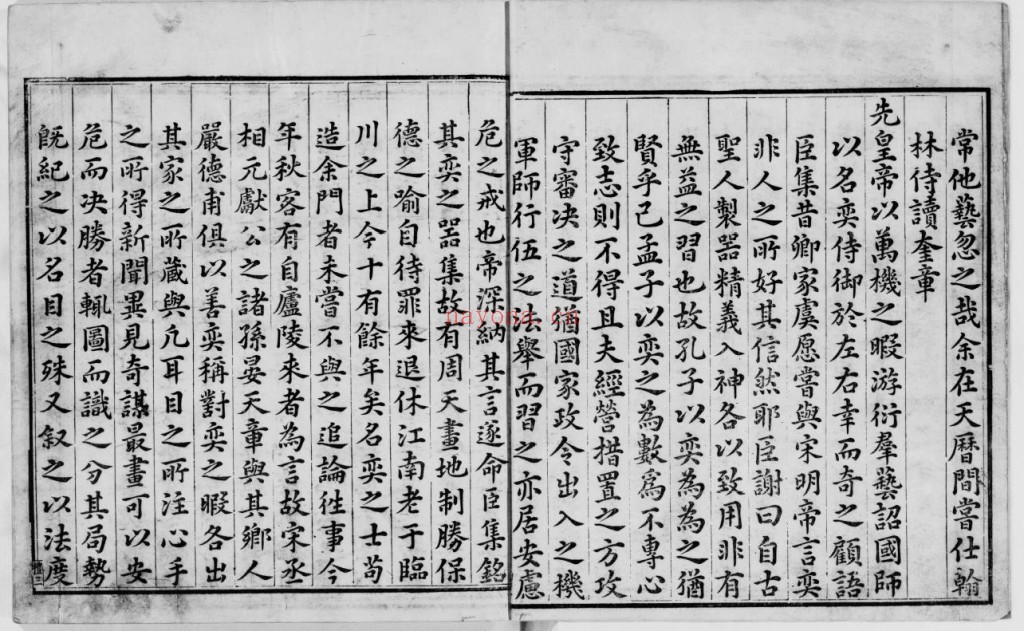 常他藝忽之哉余在天曆間嘗仕翰
林侍讀奎章
先皇帝以萬機之暇游衍羣藝詔國師
以名奕侍御於左右幸而奇之顧語
臣集昔卿家虞愿嘗與宋明帝言奕
非人之所好其信然耶臣謝曰自古
聖人製器精義入神各以致用非有
無益之習也故孔子以奕為為之猶
賢乎已孟子以奕之為數爲不專心
致志則不得且夫經營措置之方攻
守審决之道猶國家政令出入之機
軍師行伍之法舉而習之亦居安慮
危之戒也帝深納其言遂命臣集銘
其奕之器集故有周天畫地制勝保
德之喻自待罪來退休江南老于臨
川之上今十有餘年矣名奕之士茍
造余門者未嘗不與之追論徃事今
年秋客有自廬陵來者為言故宋丞
相元獻公之諸孫晏天章與其鄉人
嚴德甫俱以善奕稱對奕之暇各出
其家之所蔵與凢耳目之所注心手
之所得新聞異見奇謀最畫可以安
危而决勝者輒圖而識之分其局勢
旣紀之以名目之殊又叙之以法度
nayona.cn